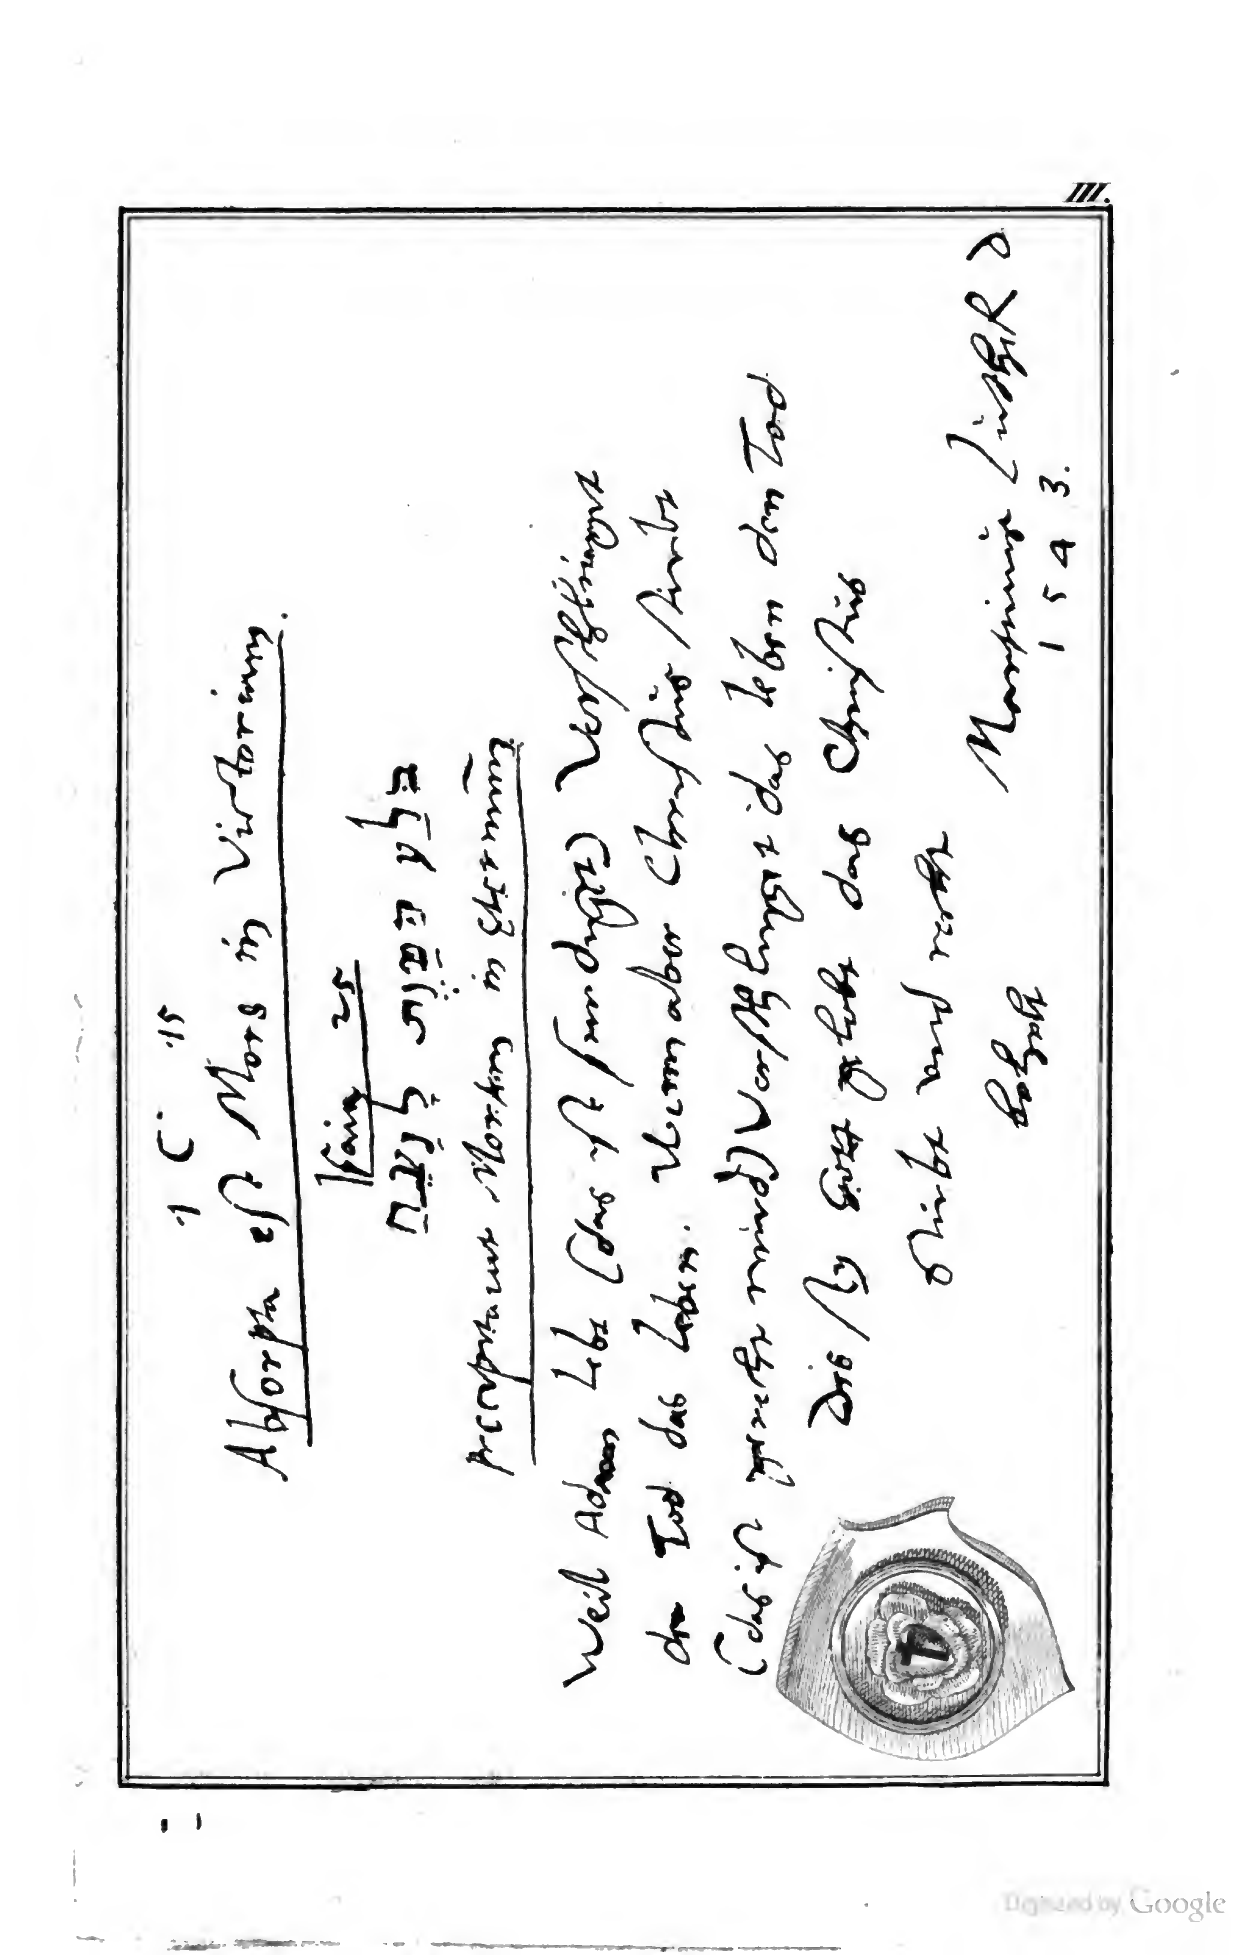 III.
1 C. 15
Absorpta est Mors in Victoriam.
Esaie 25
בלע המות לנצח
Mortem in
Weil Adam lebt (das ist sundigt) Verschlinget
der Tod das Leben. Wenn aber Christus stirbt
(das ist gerecht wird) Verschlinget das leben den Tod
Des sey Gott gelobt das Christus
stirbt und recht
behelt
Martinus Luther D
1 5 4 3.
Digitized by Google